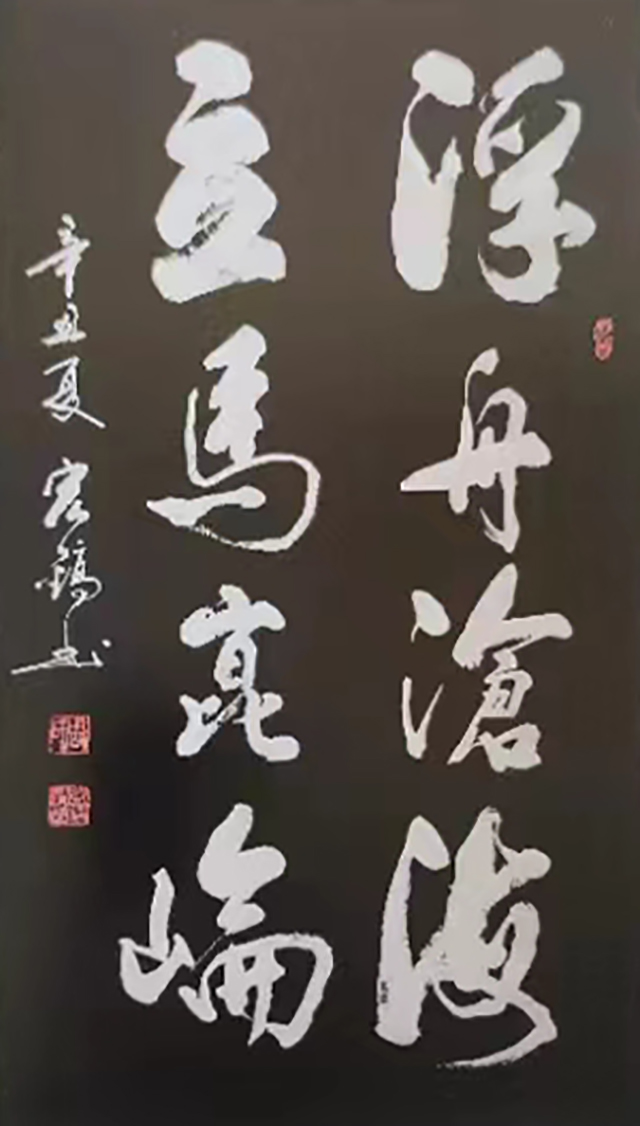 浮舟滄海
立馬崑崙
辛丑夏 宏鎬書